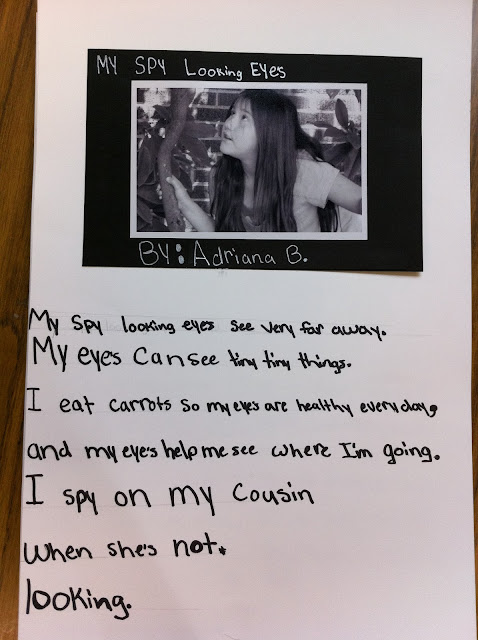 MY SPY Looking EYES
BY: Adriana B.
My spy looking eyes see very far away.
My eyes can see tiny tiny things.
I eat carrots so my eyes are healthy everyday,
and my eye's help me see where I'm going.
I spy on my cousin
when she's not.
looking.